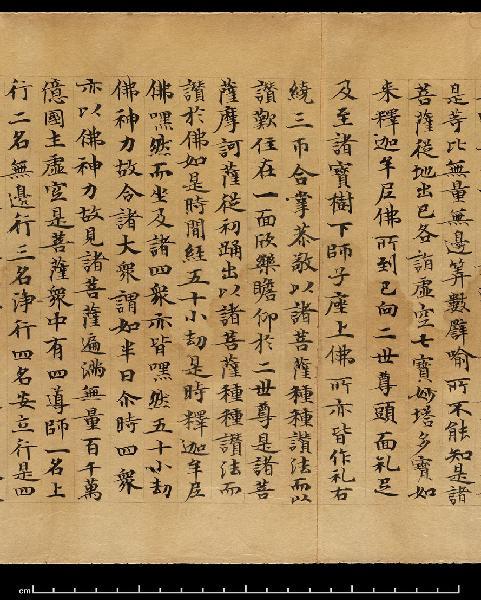 是等比無量無邊筭數譬喻所不能知是諸
菩薩從地出已各詣虛空七寶妙塔多寶如
來釋迦牟尼佛所到已向二世尊頭面礼足
及至諸寶樹下師子座上佛所亦皆作礼右
繞三帀合掌恭敬以諸菩薩種種讃法而以
讃歎住在一面欣樂瞻仰於二世尊是諸菩
薩摩訶薩從初踊出以諸菩薩種種讃法而
讃於佛如是時間經五十小劫是時釋迦牟尼
佛嘿然而坐及諸四衆亦皆嘿然五十小劫
佛神力故令諸大衆謂如半日尒時四衆
亦以佛神力故見諸菩薩遍滿無量百千萬
億國土虛空是菩薩衆中有四導師一名上
行二名無邊行三名淨行四名安立行是四
cm